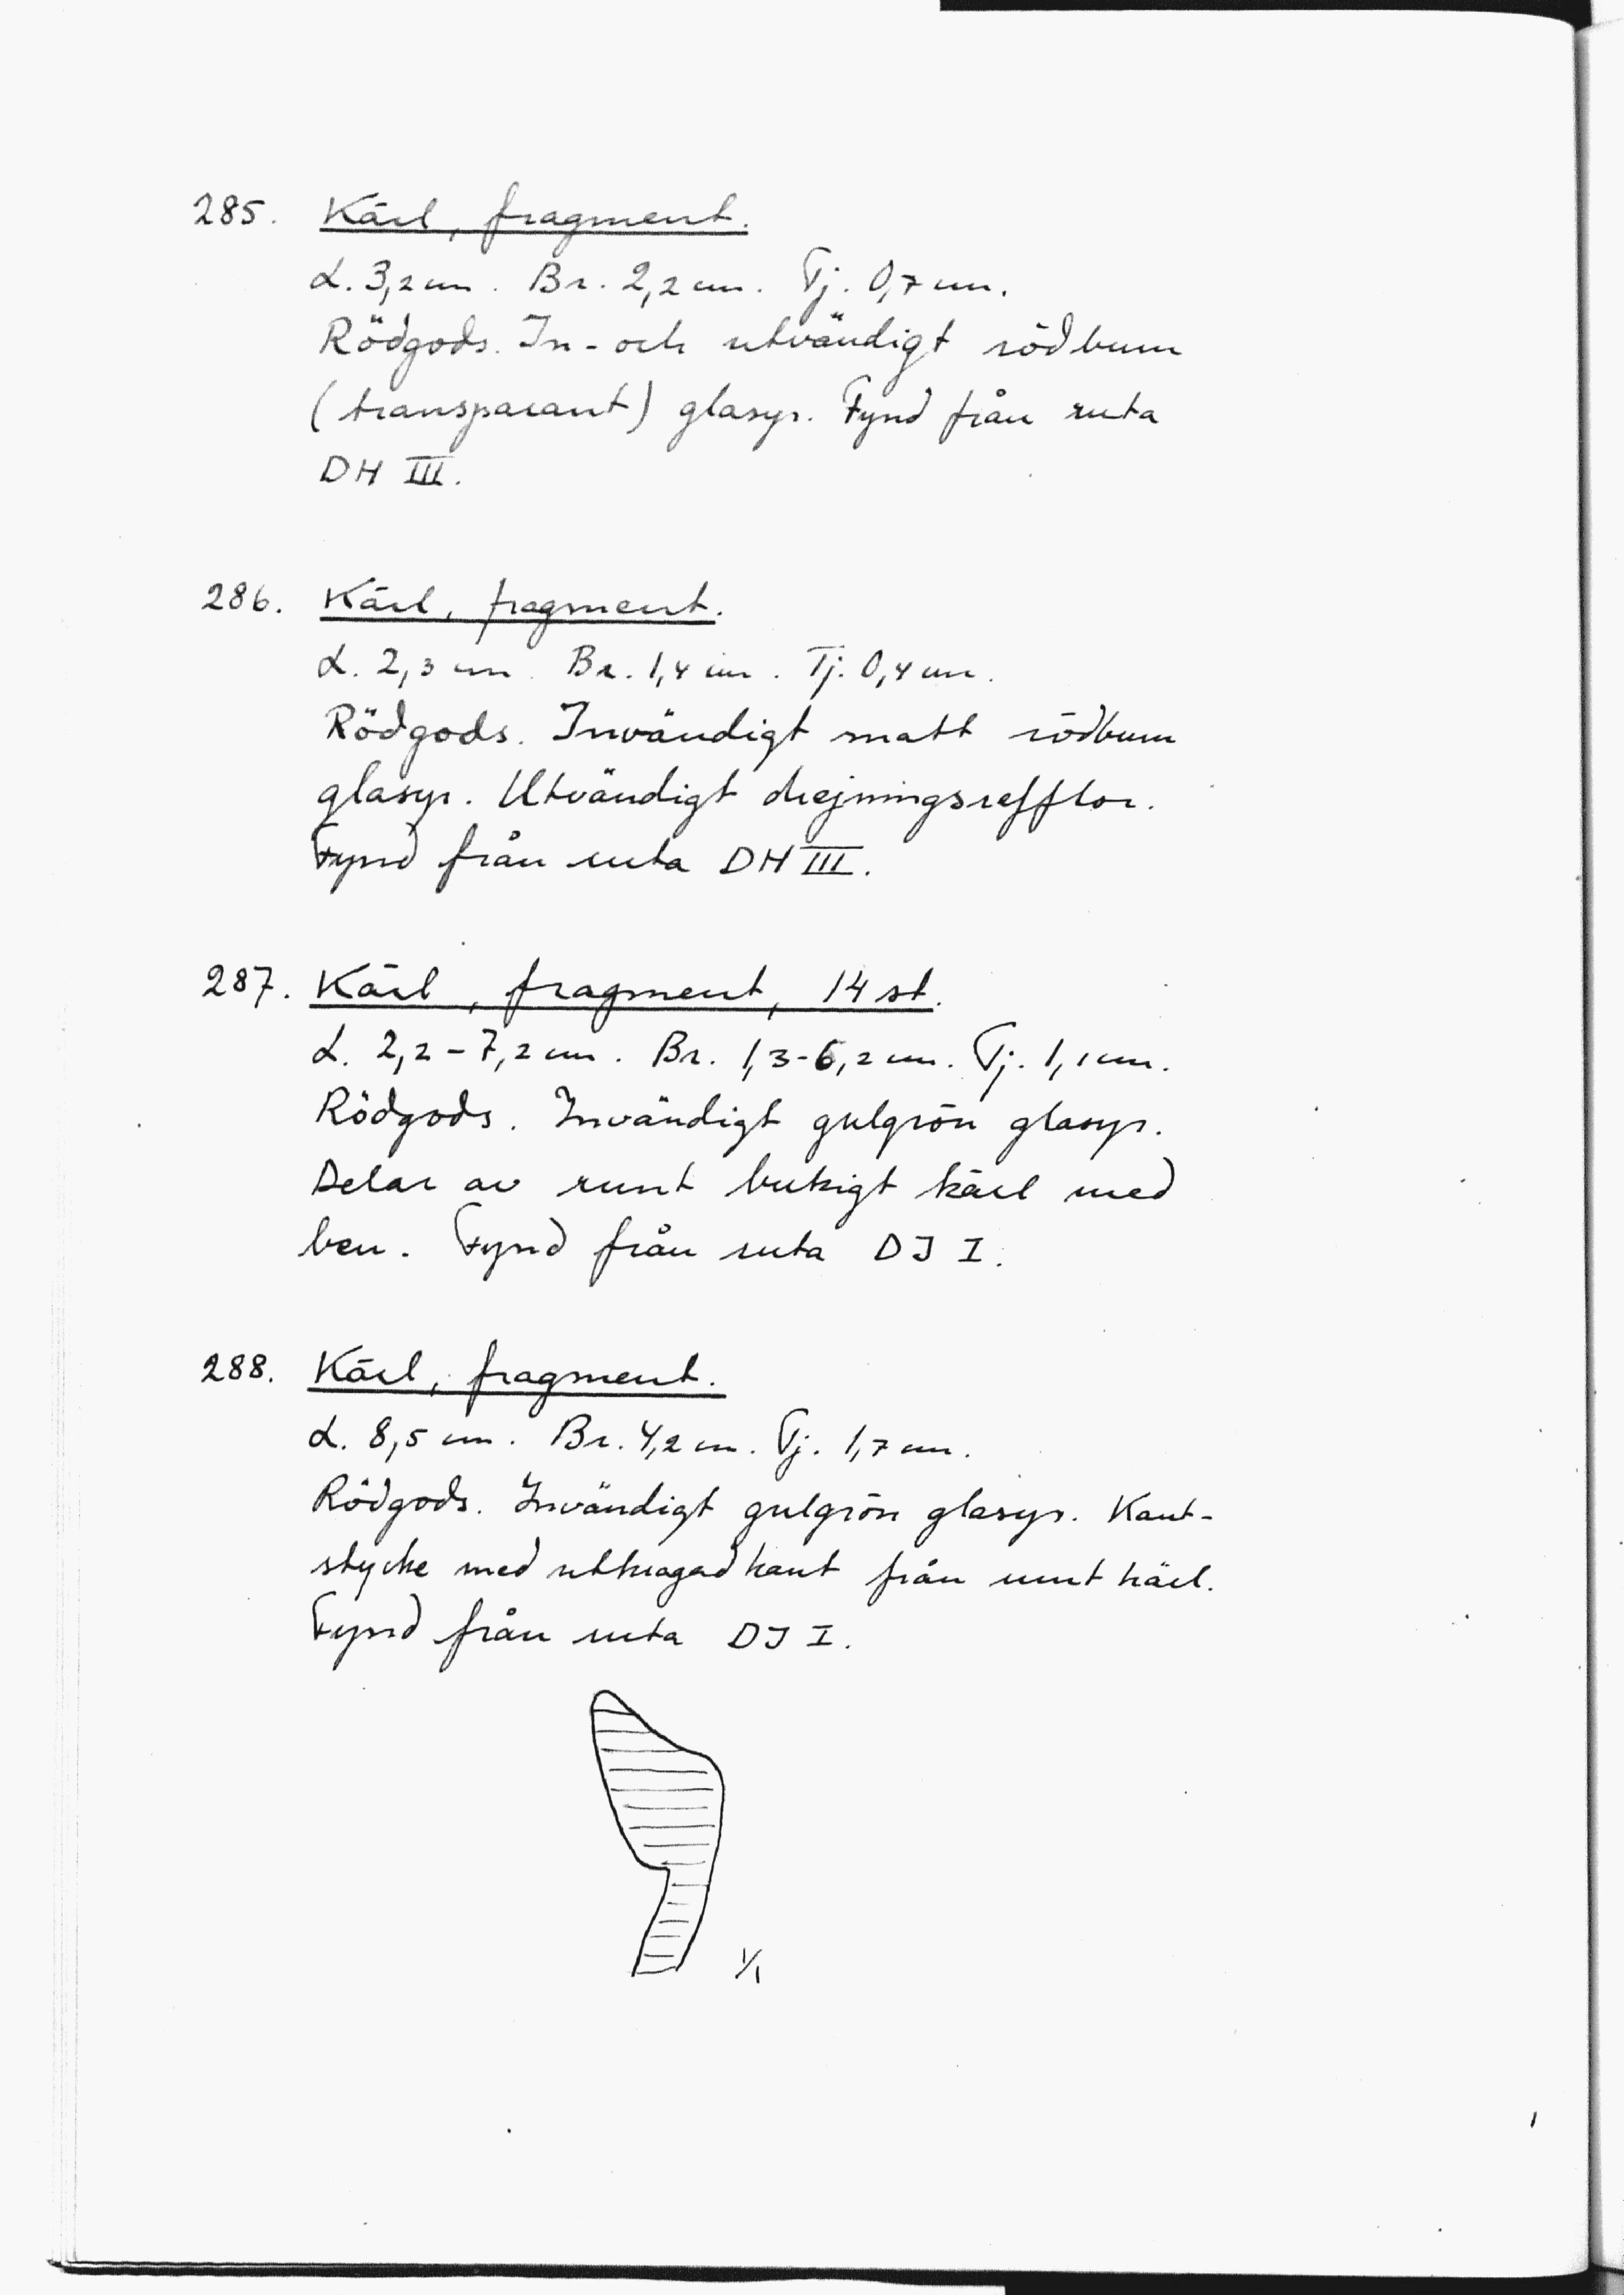 285. Kärl, fragment.
L. 3,2 cm. Br. 2,2 cm. Tj. 0,7 cm.
Rödgods. In- och utvändigt rödbrun
(transparant) glasyr. Fynd från ruta
DH III.
286. Kärl, fragment.
L. 2,3 cm. Br. 1,4 cm. Tj. 0,4 cm.
Rödgods. Invändigt matt rödbrun
glasyr. Utvändigt drejningsrefflor.
Fynd från ruta DH III.
287. Kärl, fragment, 14 st.
L. 2,2-7,2 cm. Br. 1,3-6,2 cm. Tj. 1,1 cm.
Rödgods. Invändigt gulgrön glasyr.
Delar av runt bukigt kärl med
ben. Fynd från ruta DJ I.
288. Kärl, fragment.
L. 8,5 cm. Br. 4,2 cm. Tj. 1,7 cm.
Rödgods. Invändigt gulgrön glasyr. Kant-
stycke med utkragad kant från runt kärl.
Fynd från ruta DJ I.
1/1